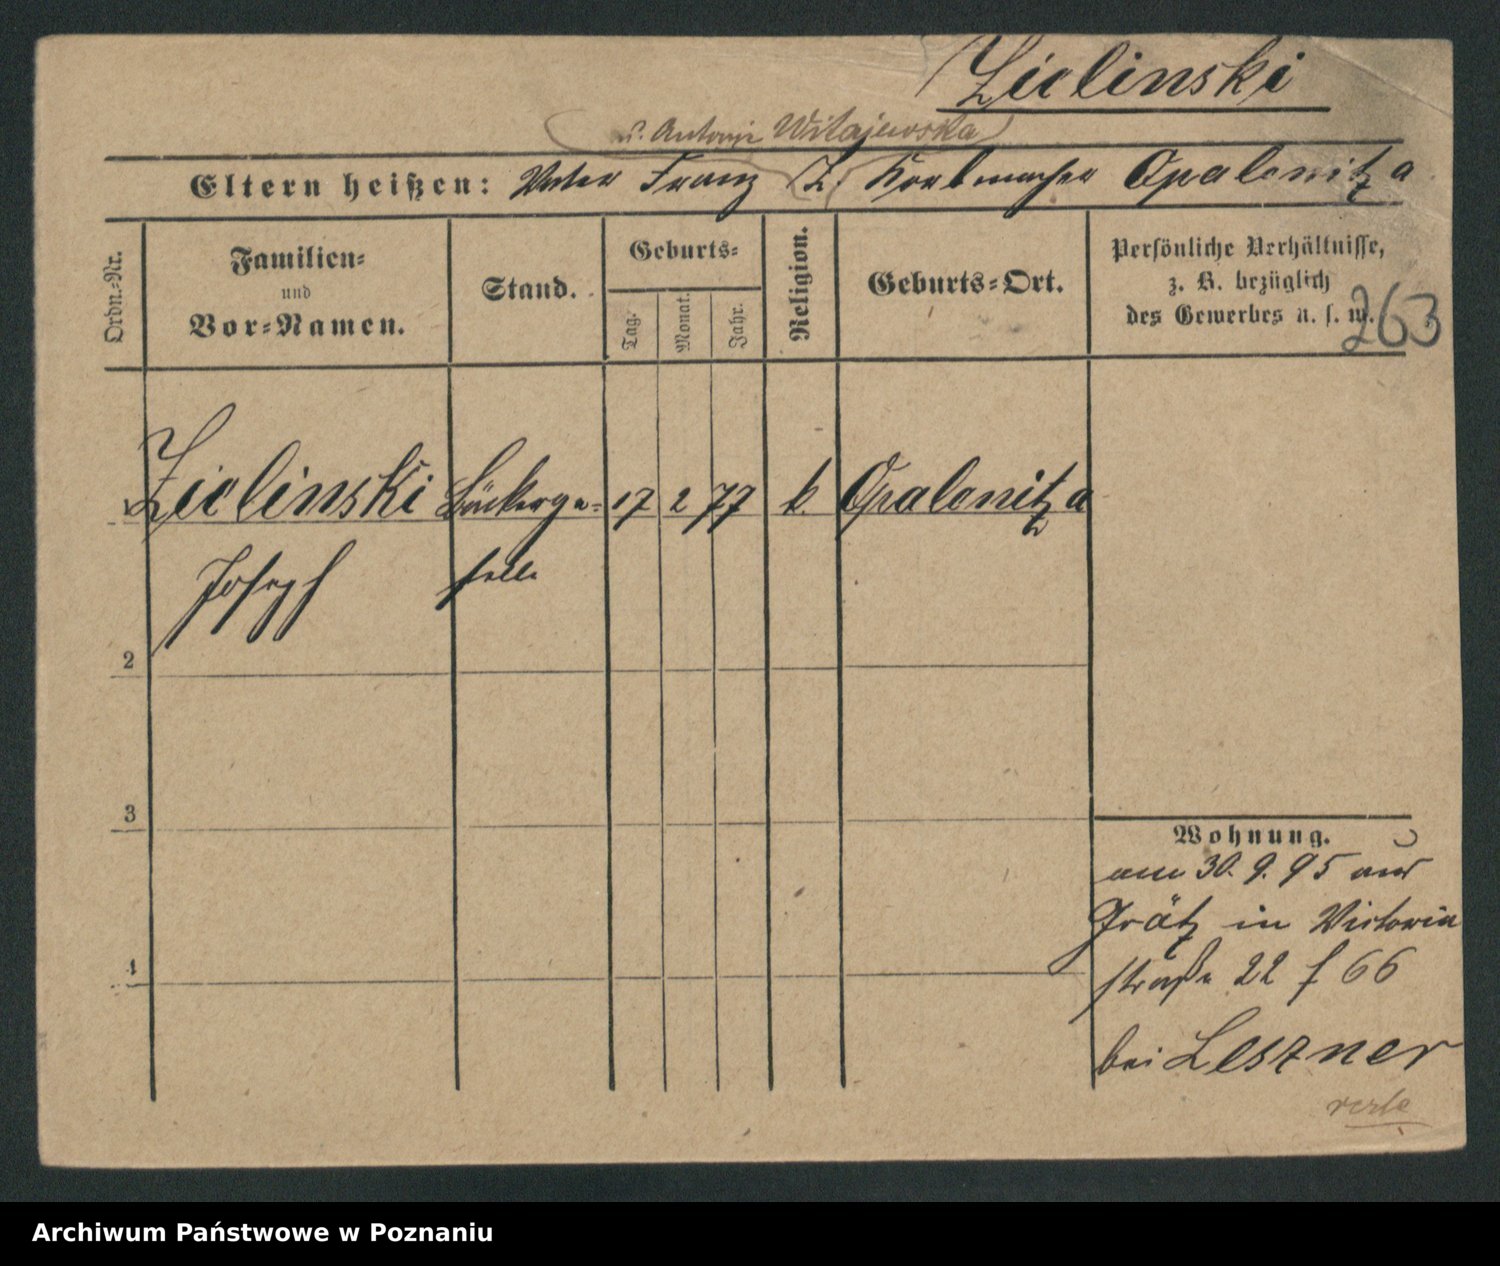 Zielinski
u. Antonie Witajewska
Eltern heißen: Vater Franz Z. Korbmacher Opalenitza
Ordn.-Nr.
Familien-
und
Vor-Namen.
Stand.
Geburts-
Tag.
Monat.
Jahr.
Religion.
Geburts-Ort.
Persönliche Verhältnisse,
z. B. bezüglich
des Gewerbes u. s. w.
263
1 Zielinski Bäckerge- 17 2 77 k. Opalenitza
Joseph selle
2
3
4
Wohnung.
am 30. 9. 95 aus
Grätz in Victoria
straße 22 f 66
bei Leszner
verte
Archiwum Państwowe w Poznaniu